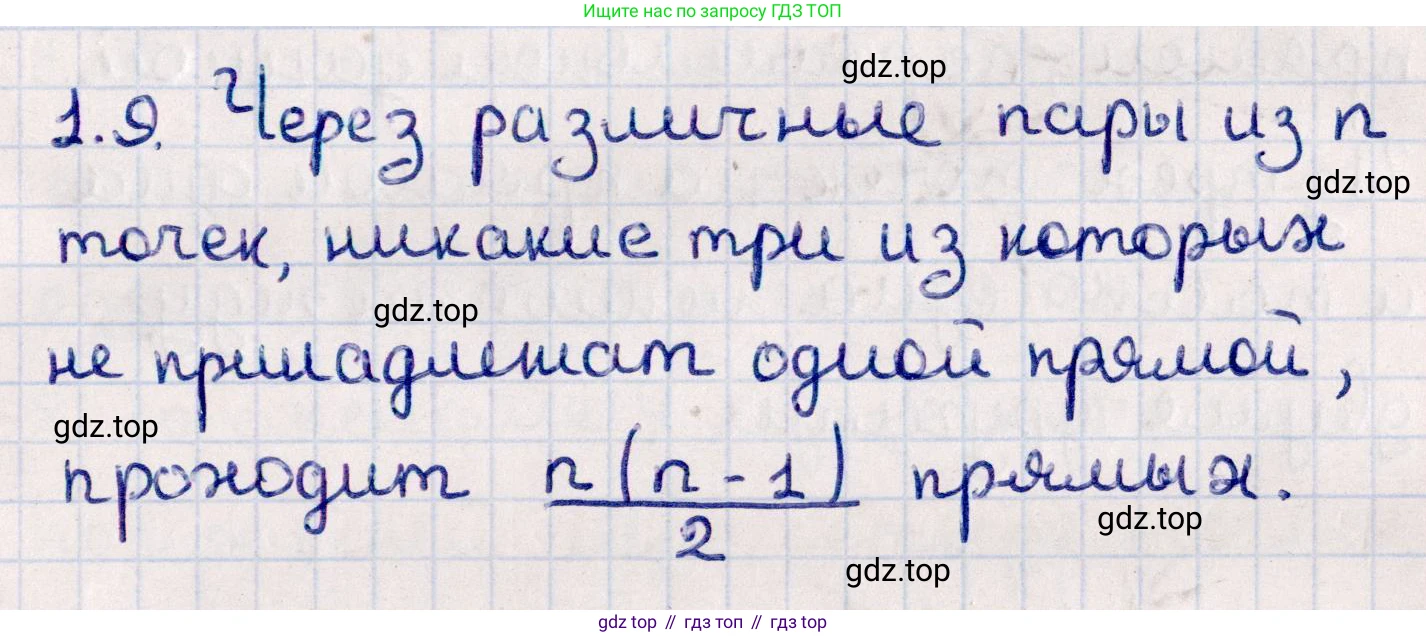 Ищите нас по запросу ГДЗ ТОП
gdz.top
1.9. Через различные пары из n
gdz.top
точек, никакие три из которых
gdz.top
не принадлежат одной прямой,
gdz.top
проходит n(n-1)/2 прямых.
gdz.top
gdz.top
gdz top // гдз топ // гдз top